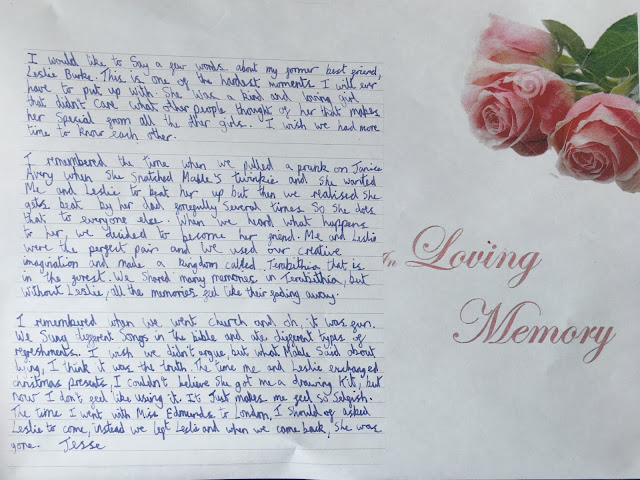 I would like to say a few words about my former best friend,
Leslie Burke. This is one of the hardest moments I will ever
have to put up with. She was a kind and loving girl
that didn't care what other people thought of her that makes
her special from all the other girls. I wish we had more
time to know each other.
I remembered the time when we pulled a prank on Janice
Avery when she snatched Mable's twinkie and she wanted
Me and Leslie to beat her up but then we realised She
gets beat by her dad forcefully several times So She does
that to everyone else. When we heard what happens
to her, we decided to become her friend. Me and Leslie
were the perfect pair and we used our creative
imagination and make a kingdom called Terabithia that is
in the forest. We shared many memories in Terabithia, but
without Leslie, all the memories feel like their fading away.
I remembered when we went church and oh, it was fun.
We Sung different Songs in the bible and ate different types of
refreshments. I wish we didn't argue, but what Mable Said about
dying, I think it was the truth. The time me and Leslie exchanged
christmas presents, I couldn't believe she got me a drawing Kit, but
now I don't feel like using it. It Just makes me feel so Selfish.
The time I went with Miss Edmunds to London, I Should of asked
Leslie to come, instead we left Leslie and when we came back, She was
gone. Jesse
In Loving
Memory